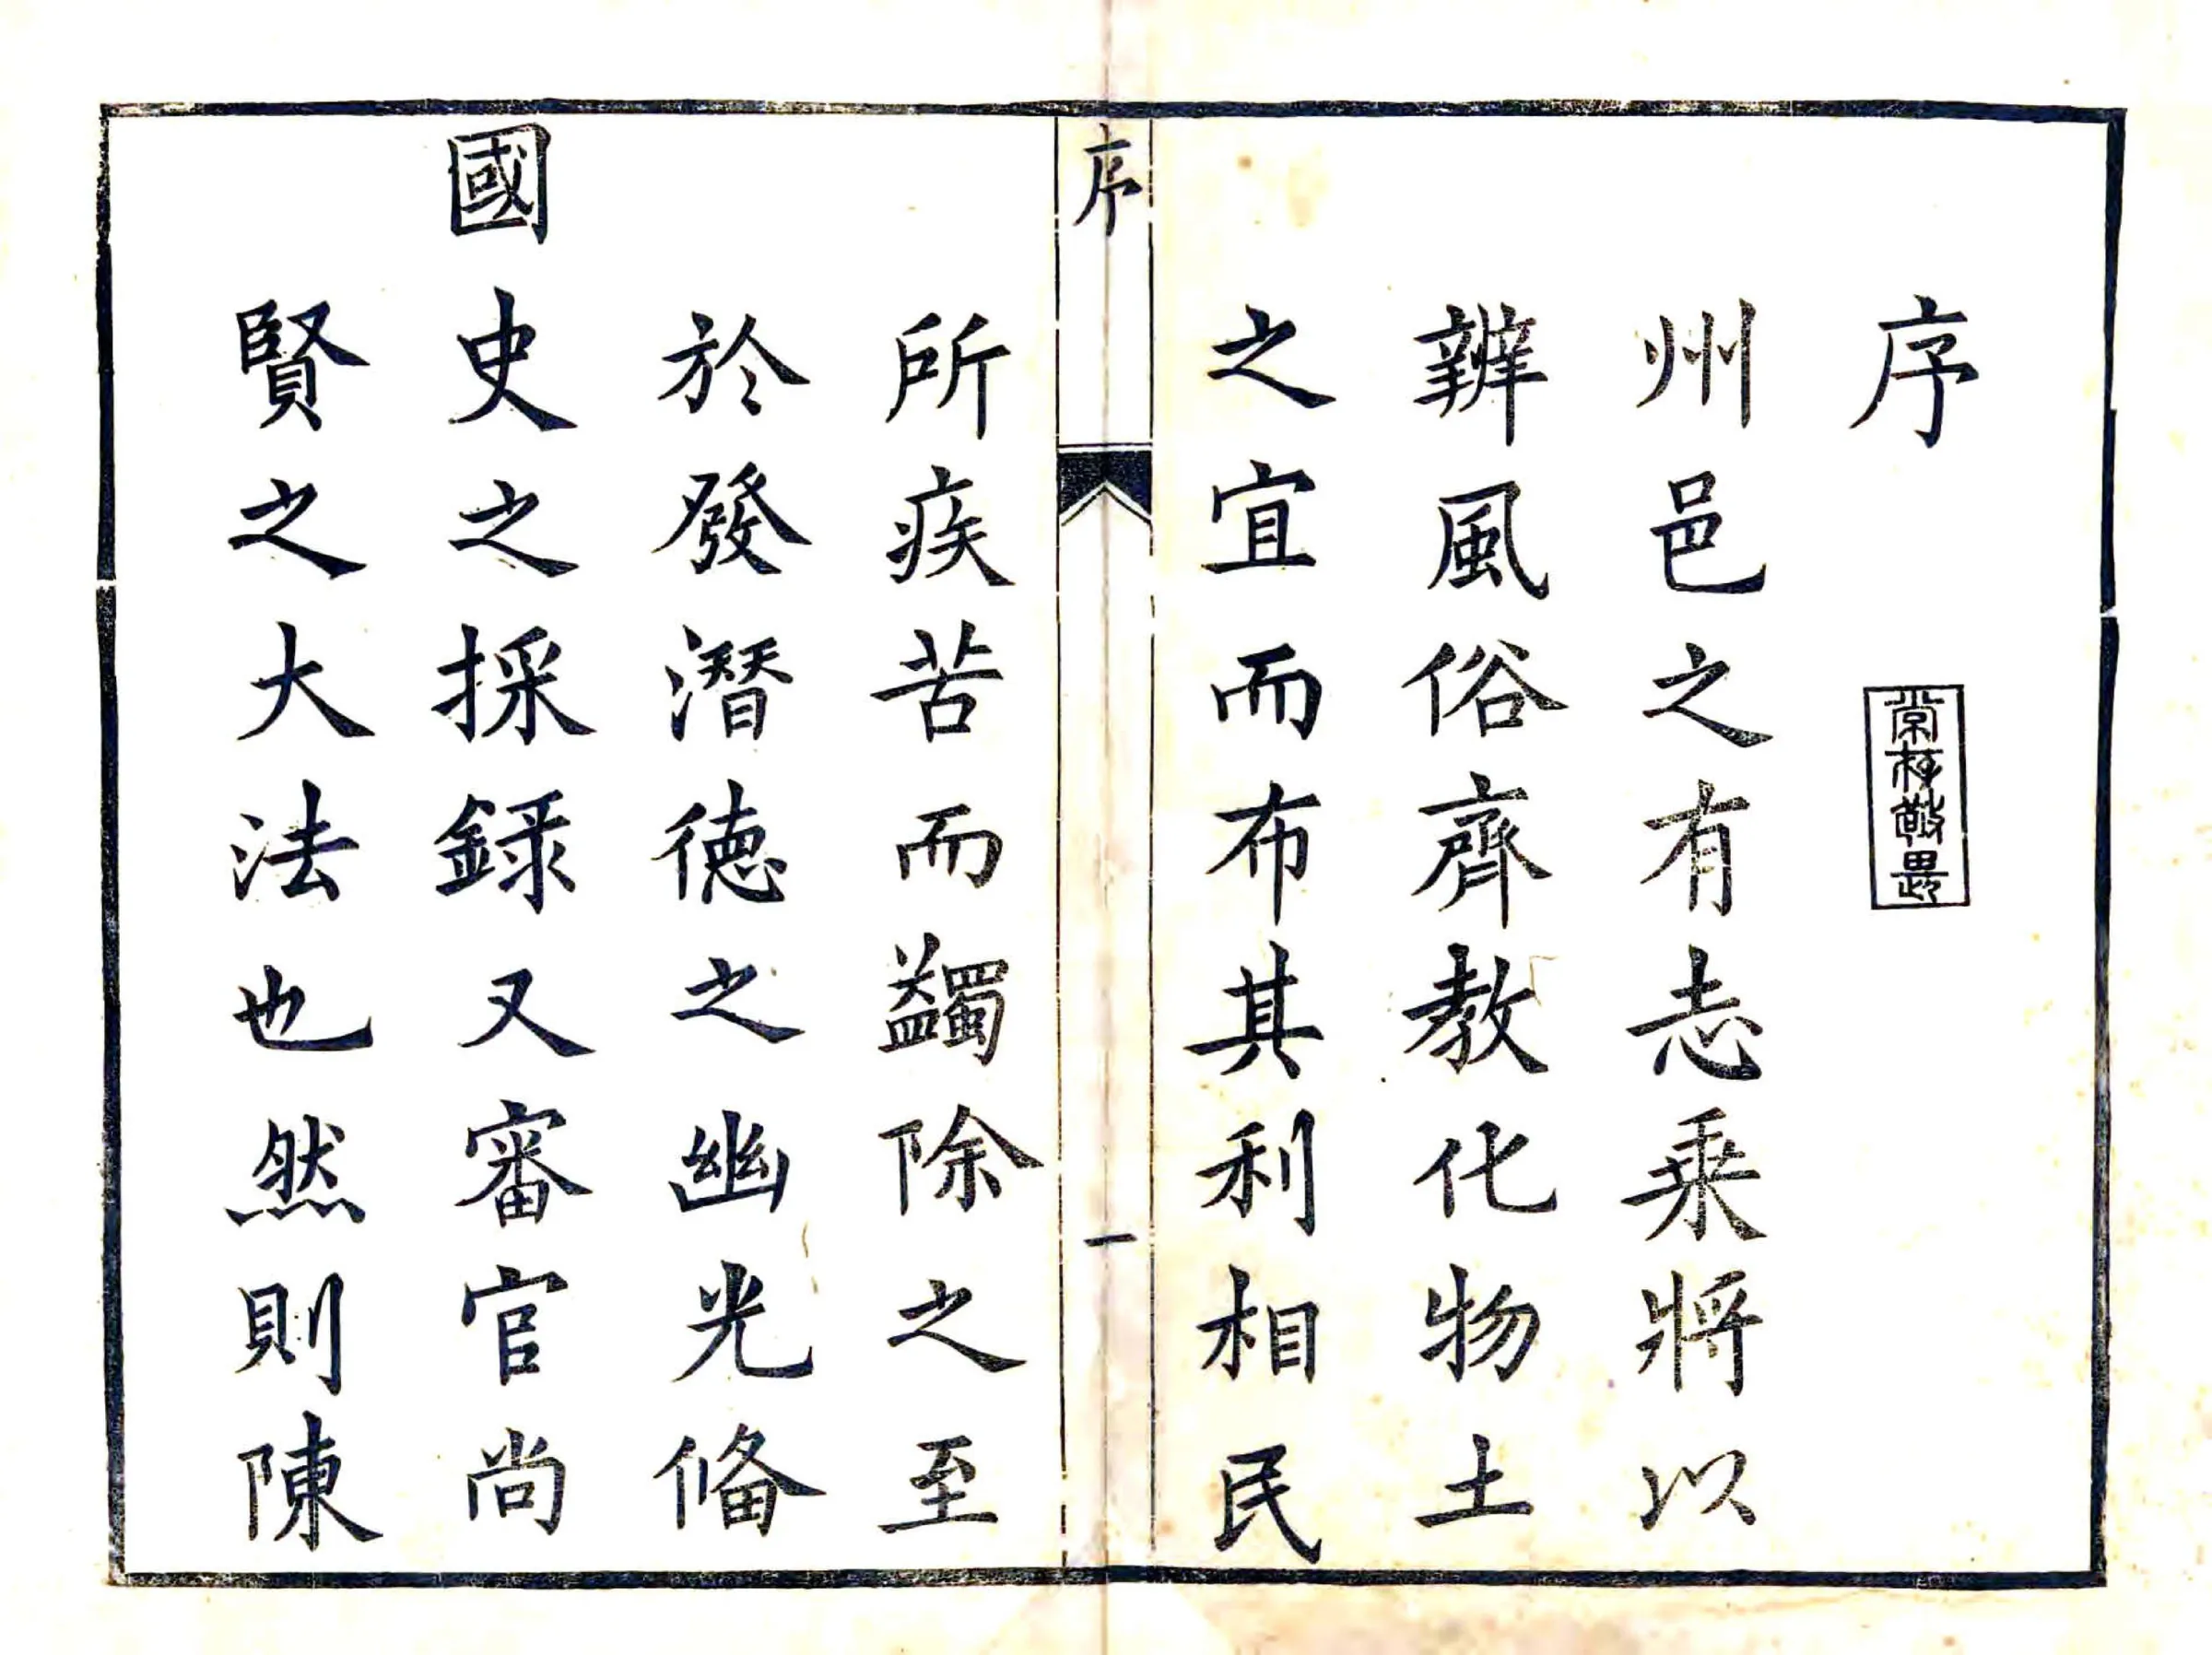 序
州邑之有志乗將以
辨風俗齊教化物土
之宜而布其利相民
序
一
所疾苦而蠲除之至
於發潛德之幽光俻
國史之採録又審官尚
賢之大法也然則陳